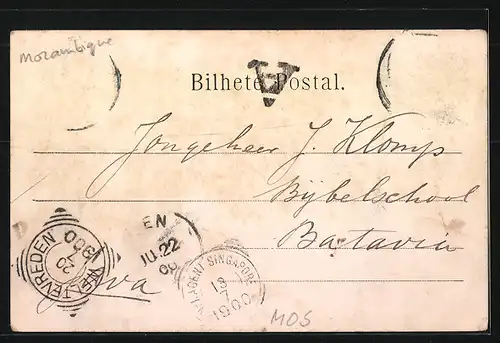 Mozambique
A
Bilhete Postal.
Jongeheer J. Klomp
Bijbelschool
Batavia
Java
WELTEVREDEN
1900
EN
JU 22
00
N.I. AGENT SINGAPORE
1900
MOS